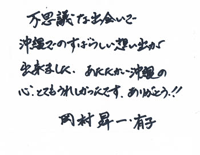 不思議な出会いで
沖縄でのすばらしい想い出が
出来ました。あたたかい沖縄の
心、とてもうれしかったです。ありがとう!!
岡村昇一・有子